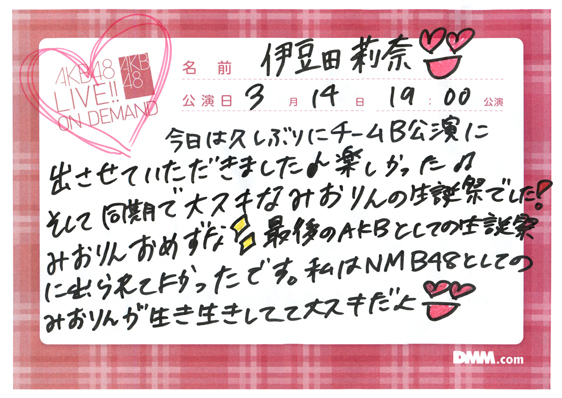 AKB48
LIVE!!
ON DEMAND
AKB
48
名前 伊豆田莉奈
公演日 3月14日 19:00公演
今日は久しぶりにチームB公演に
出させていただきました♪楽しかった♫
そして同期で大スキなみおりんの生誕祭でした!
みおりんおめずな 最後のAKBとしての生誕祭
に出られてよかったです。私はNMB48としての
みおりんが生き生きしてて大スキだよ
DMM.com